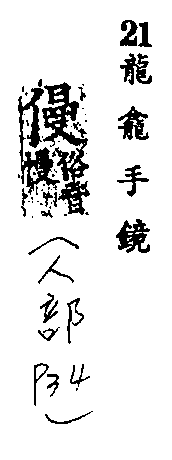 21龍龕手鏡
僈俗音慢
(人部P34)